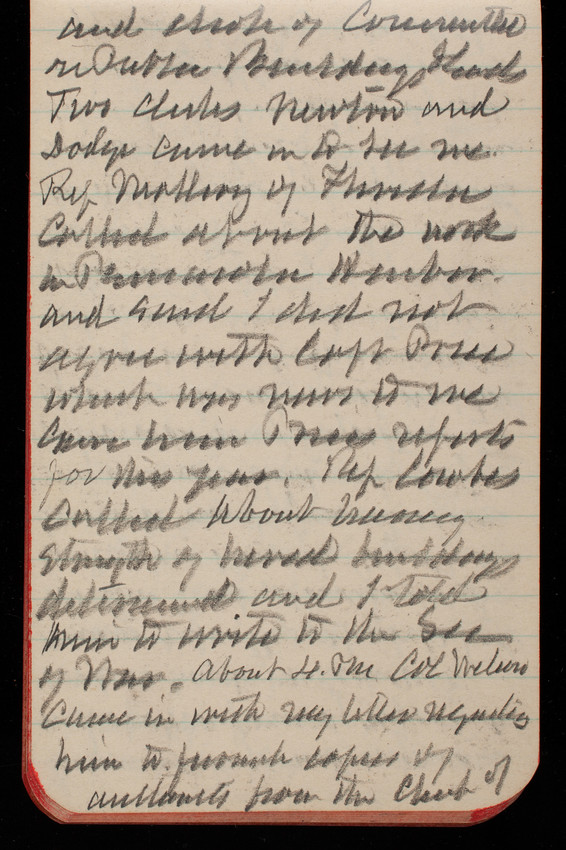 and clerk of Committee
on Public Buildings &
Two clerks Newton and
Dodge came in to see me.
Rep Mallory of Florida
Called about the work
in Pensacola Harbor.
and said I did not
agree with Capt Price
which was news to me
Gave him Prices reports
for this year. Rep Cowles
Called about having
Strength of brick buildings
determined and I told
him to write to the Sec
of War. About 4. PM Col Wilson
Came in with my letter regarding
him to furnish copies of
from the Chief of